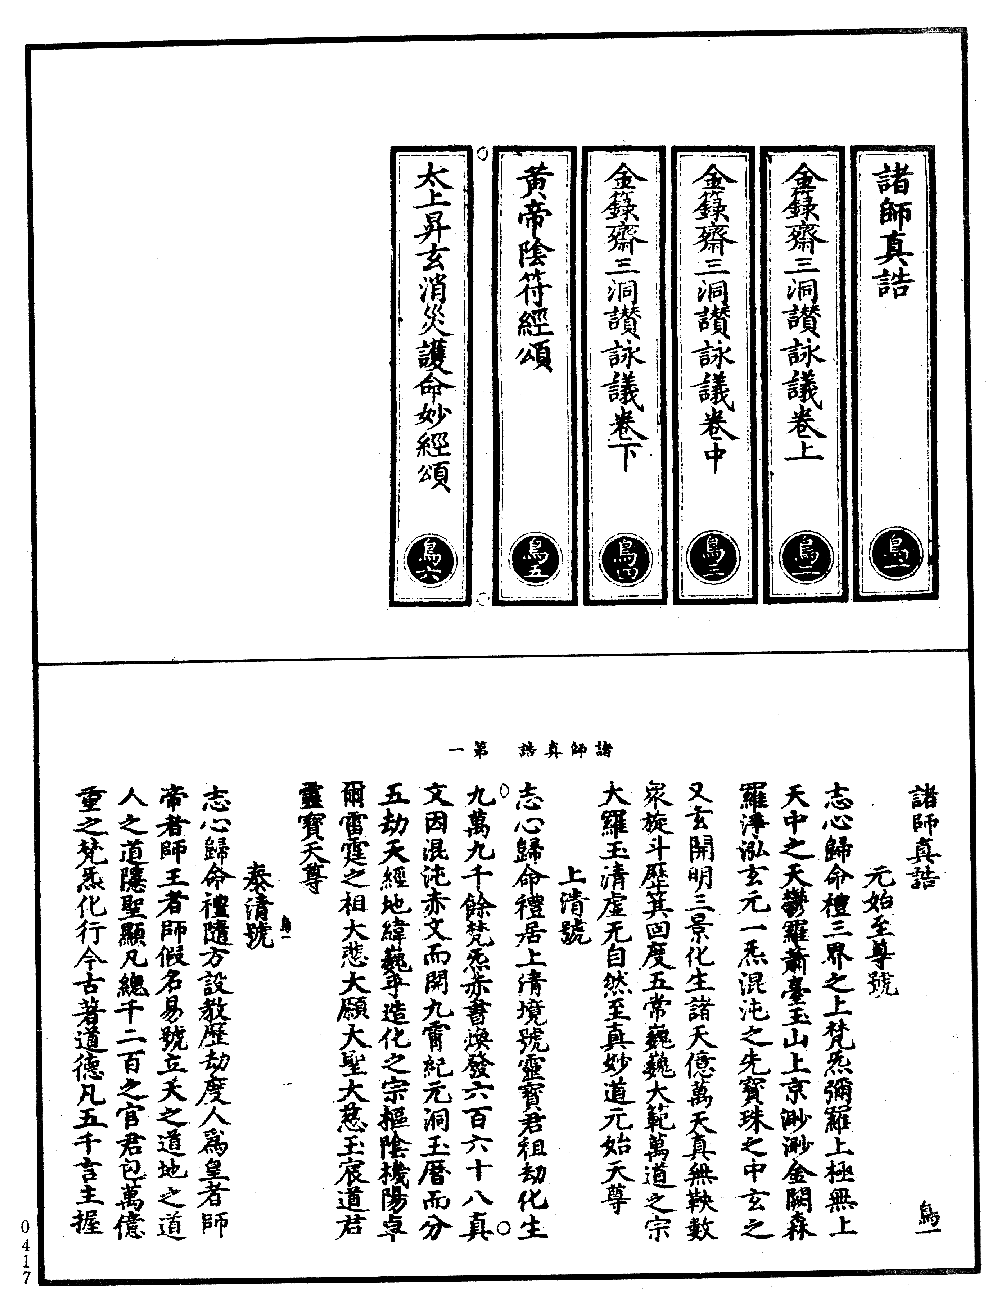 諸師真誥
鳥一
金籙齋三洞讚詠議卷上
鳥二
金籙齋三洞讚詠議卷中
鳥三
金籙齋三洞讚詠議卷下
鳥四
黃帝陰符經頌
鳥五
太上昇玄消災護命妙經頌
鳥六
諸師真誥　第一
諸師真誥　鳥一
元始至尊號
志心歸命禮三界之上梵炁彌羅上極無上
天中之天鬱羅蕭臺玉山上京渺渺金闕森
羅淨泓玄元一炁混沌之先寶珠之中玄之
又玄開明三景化生諸天億萬天真無鞅數
衆旋斗歷箕回度五常巍巍大範萬道之宗
大羅玉清虛无自然至真妙道元始天尊
上清號
志心歸命禮居上清境號靈寶君祖劫化生
九萬九千餘梵炁赤書煥發六百六十八真
文因混沌赤文而開九霄紀元洞玉曆而分
五劫天經地緯巍乎造化之宗樞陰機陽卓
爾雷霆之祖大悲大願大聖大慈玉宸道君
靈寶天尊
鳥一
泰清號
志心歸命禮隨方設教歷劫度人爲皇者師
帝者師王者師假名易號立天之道地之道
人之道隱聖顯凡總千二百之官君包萬億
重之梵炁化行今古著道德凡五千言主握
0417